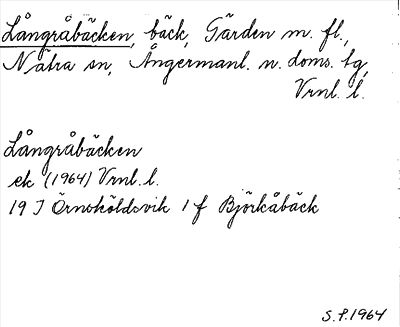 Långråbäcken, bäck, Gärden m. fl.,
Nätra sn, Ångermanl. n. doms. tg,
Vrnl. l.
Långråbäcken
ek (1964) Vrnl. l.
19 J Örnsköldsvik 1 f Björkåbäck
S. P. 1964